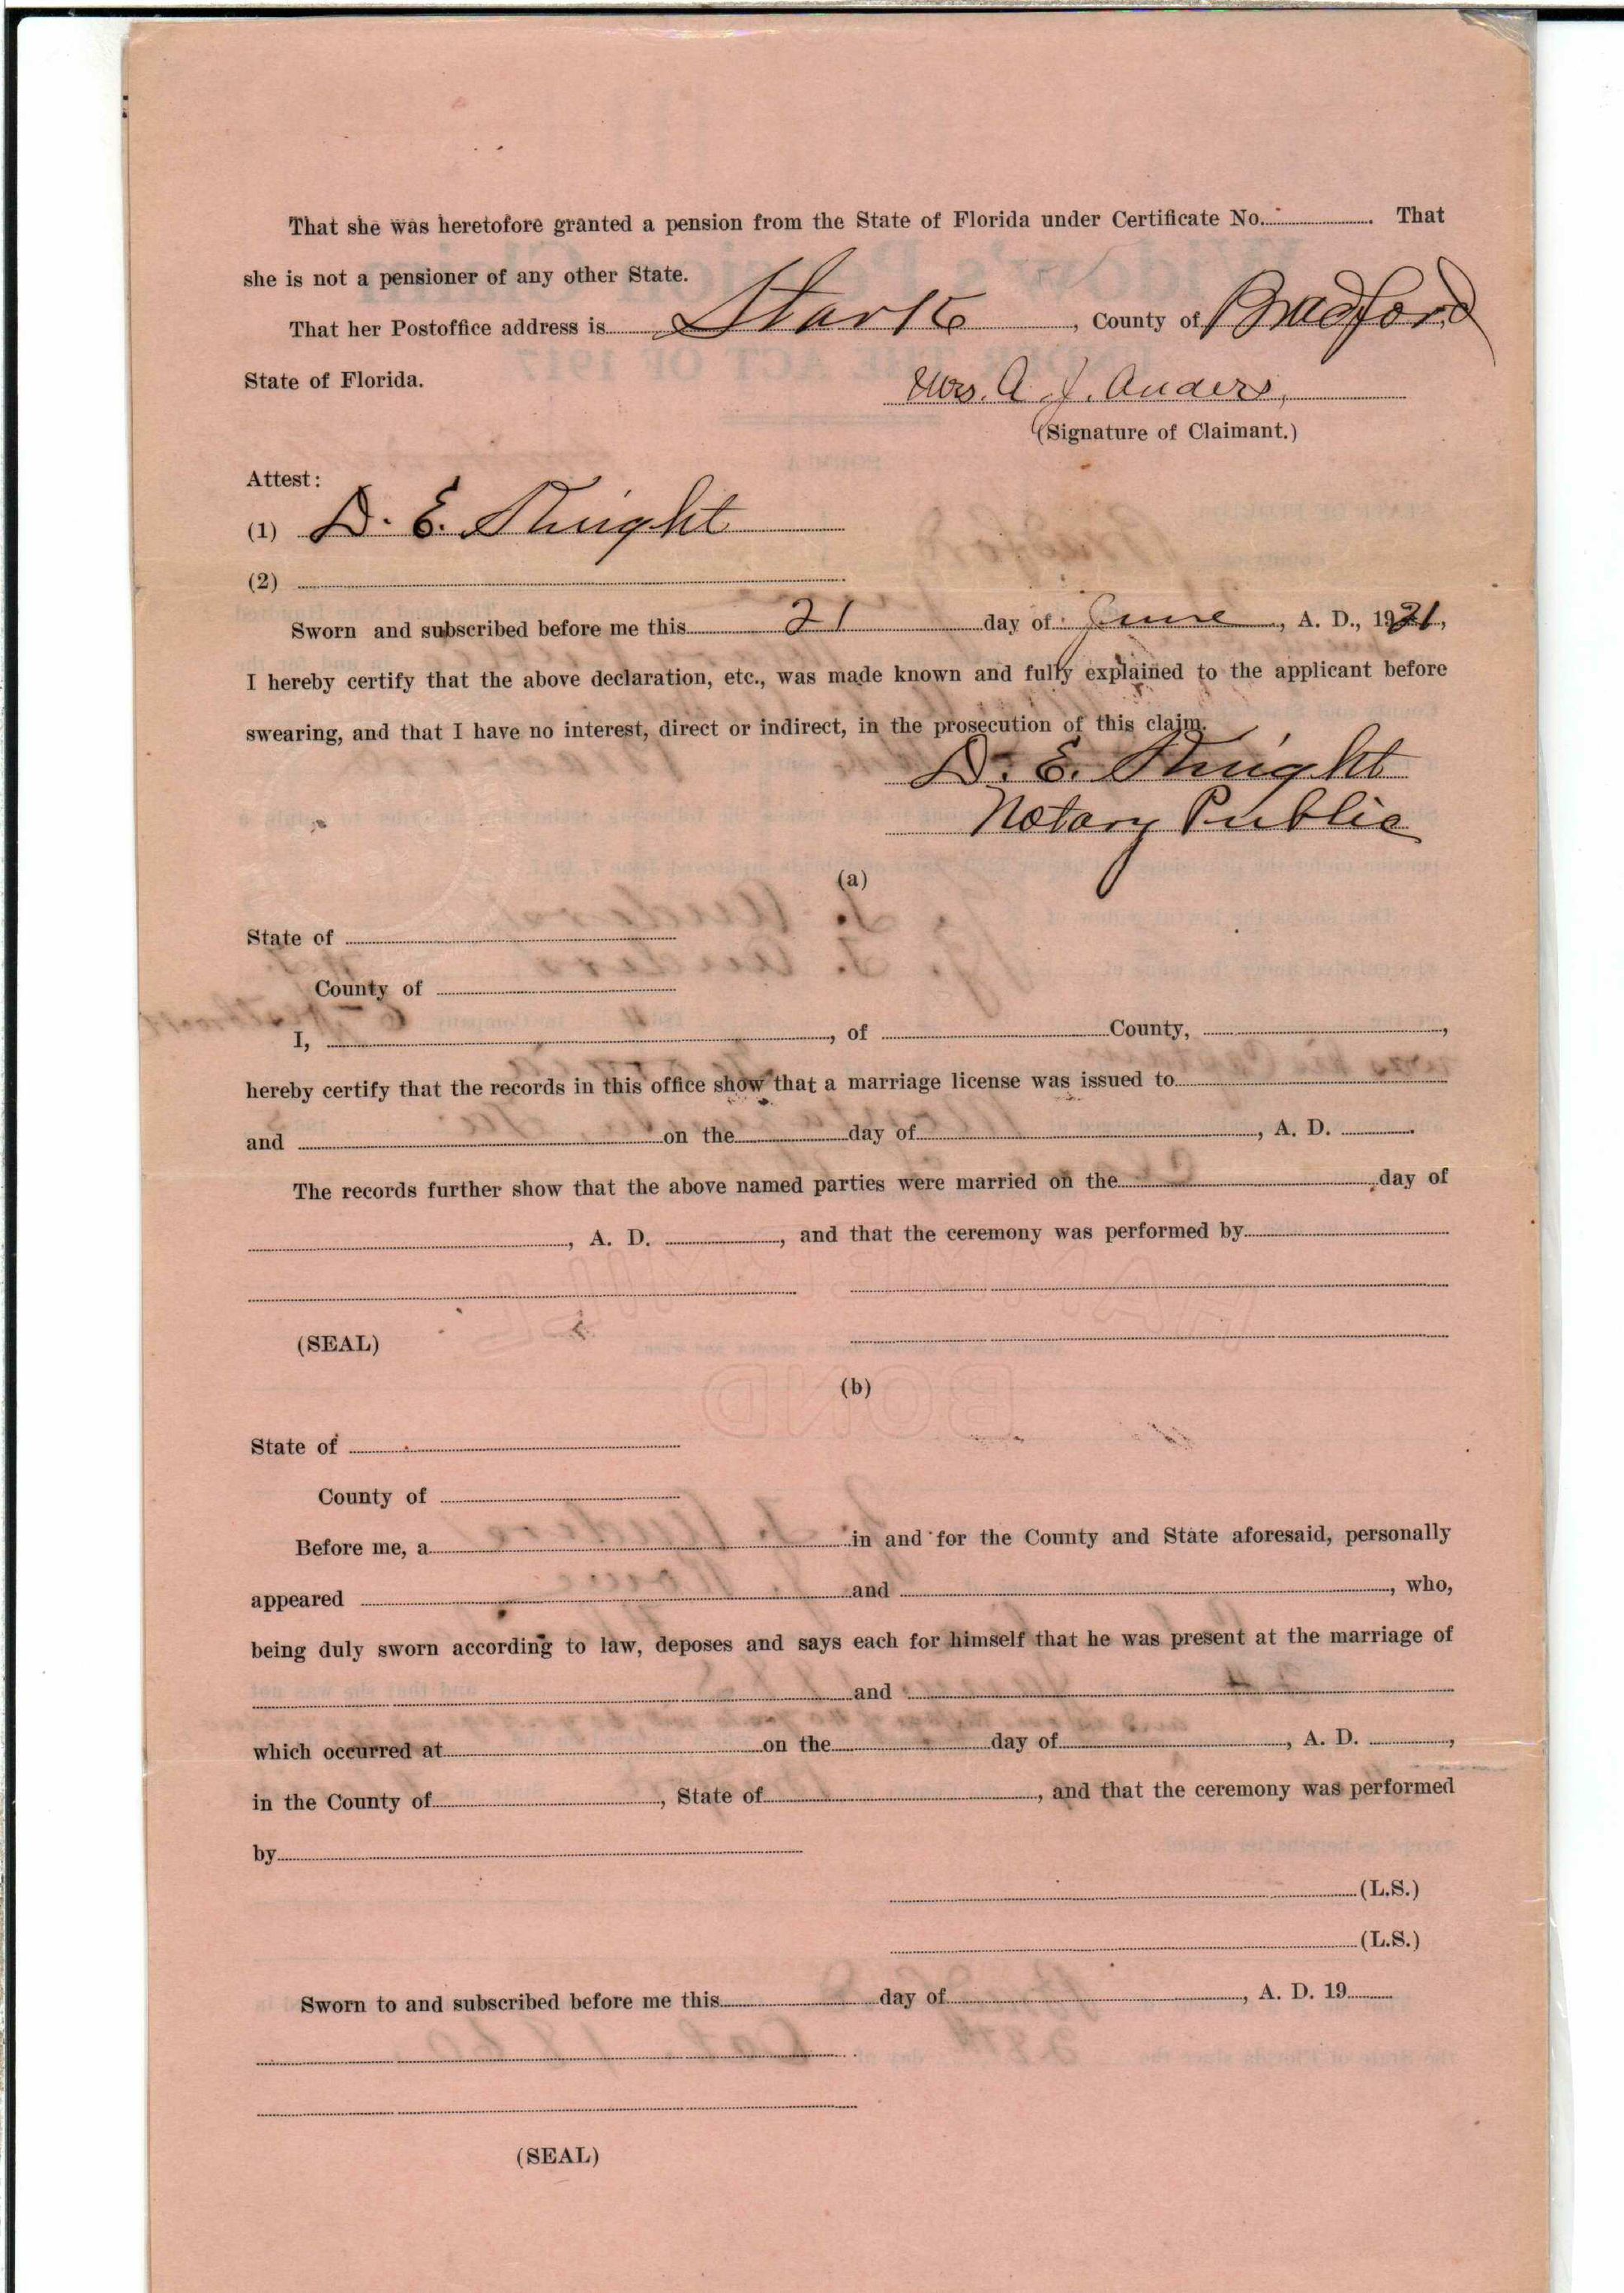 That she was heretofore granted a pension from the State of Florida under Certificate No. . That
she is not a pensioner of any other State.
That her Postoffice address is Starke, County of Bradford
State of Florida.
Mrs. A. J. Anders,
(Signature of Claimant.)
Attest:
(1) D. E. Knight
(2)
Sworn and subscribed before me this 21 day of June, A. D., 1921,
I hereby certify that the above declaration, etc., was made known and fully explained to the applicant before
swearing, and that I have no interest, direct or indirect, in the prosecution of this claim.
D. E. Knight
Notary Public
(a)
State of
County of
I, , of County, ,
hereby certify that the records in this office show that a marriage license was issued to
and on the day of , A. D. .
The records further show that the above named parties were married on the day of
, A. D. , and that the ceremony was performed by
(SEAL)
(b)
State of
County of
Before me, a in and for the County and State aforesaid, personally
appeared and , who,
being duly sworn according to law, deposes and says each for himself that he was present at the marriage of
and
which occurred at on the day of , A. D. ,
in the County of , State of , and that the ceremony was performed
by
(L.S.)
(L.S.)
Sworn to and subscribed before me this day of , A. D. 19
(SEAL)